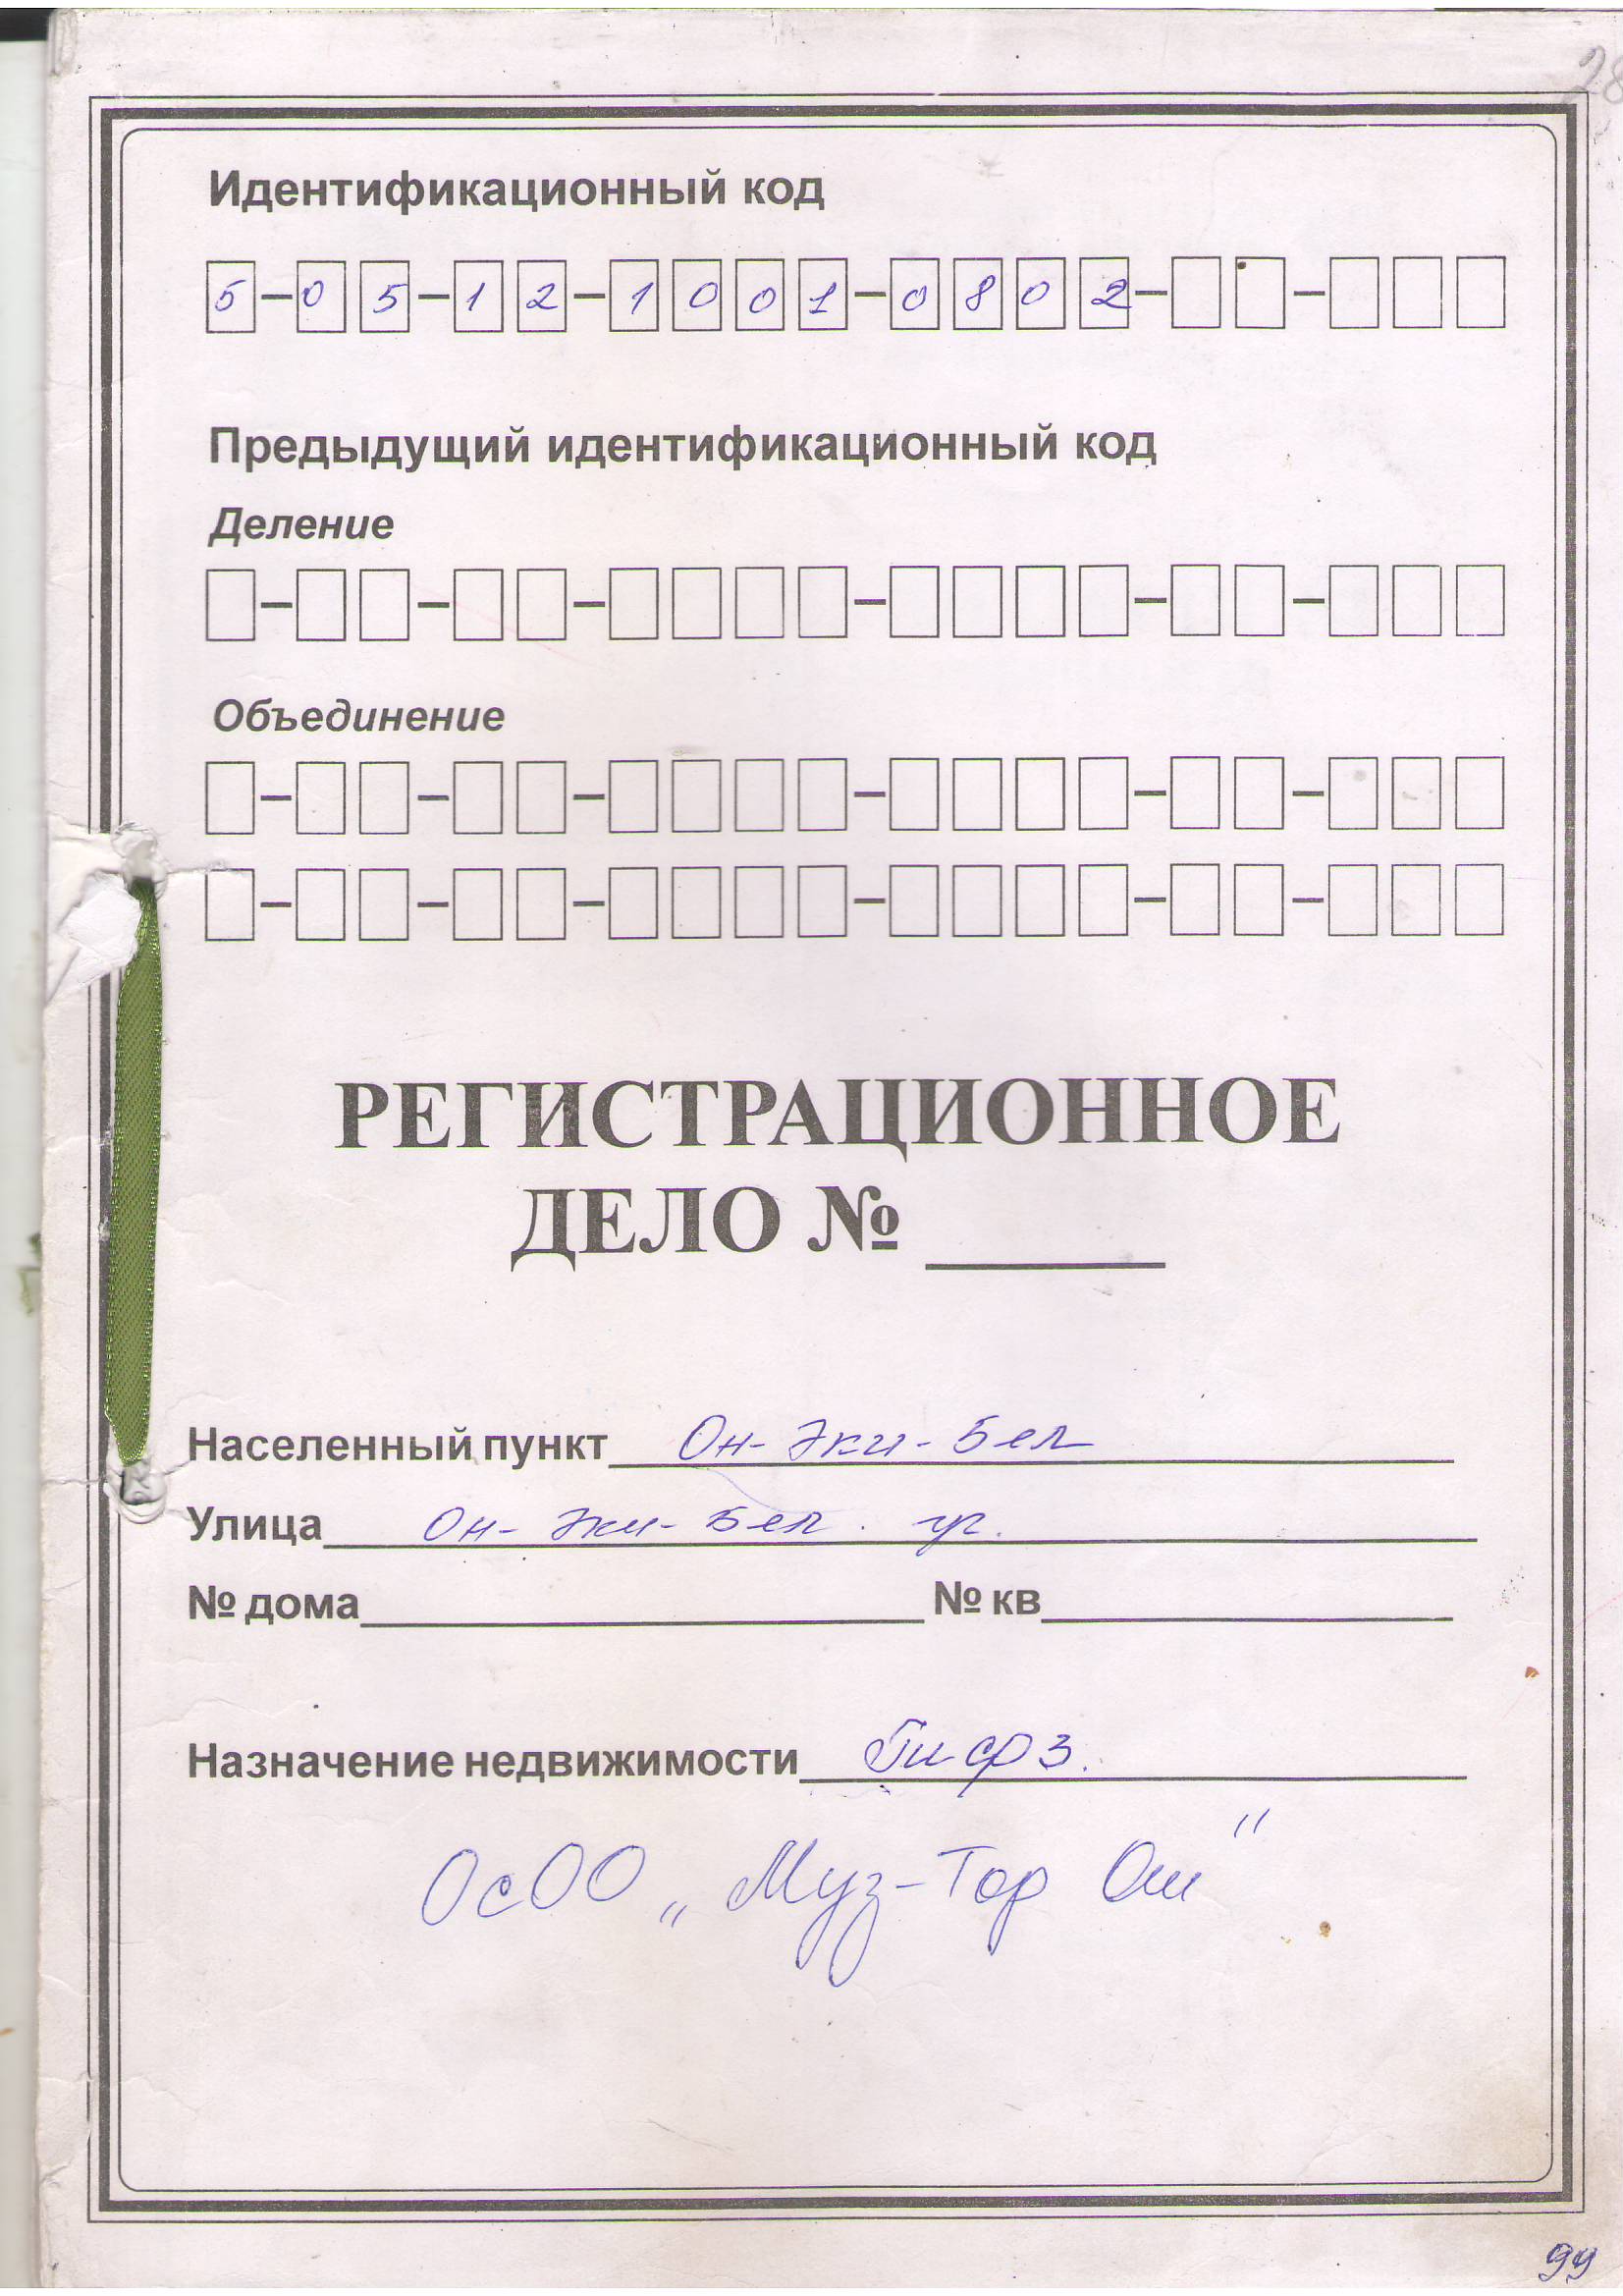 28
Идентификационный код
5-05-12-1001-0802-
Предыдущий идентификационный код
Деление
Объединение
РЕГИСТРАЦИОННОЕ
ДЕЛО № ______
Населенный пункт Он-Эки-Бел
Улица Он-Эки-Бел уч.
№ дома № кв
Назначение недвижимости ГИСФЗ.
ОсОО „Муз-Тор Ош"
99